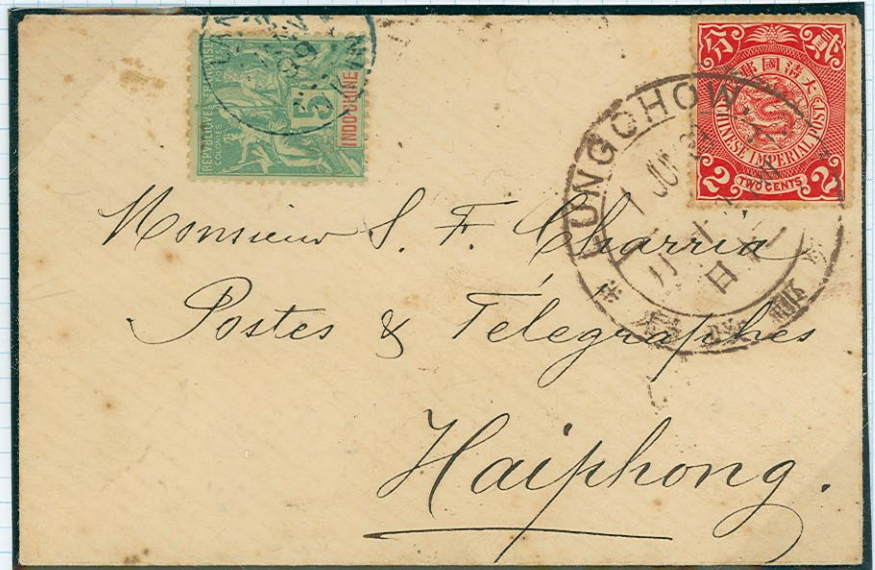 REPVBLIQVE FRANÇAISE
COLONIES
POSTES
5
INDO-CHINE
99
貳 分
大清國郵政
CHINESE IMPERIAL POST
2 2
TWO CENTS
LUNGCHOW
JUN
月
日
Monsieur S. F. Charria
Postes & Télegraphes
Haiphong.